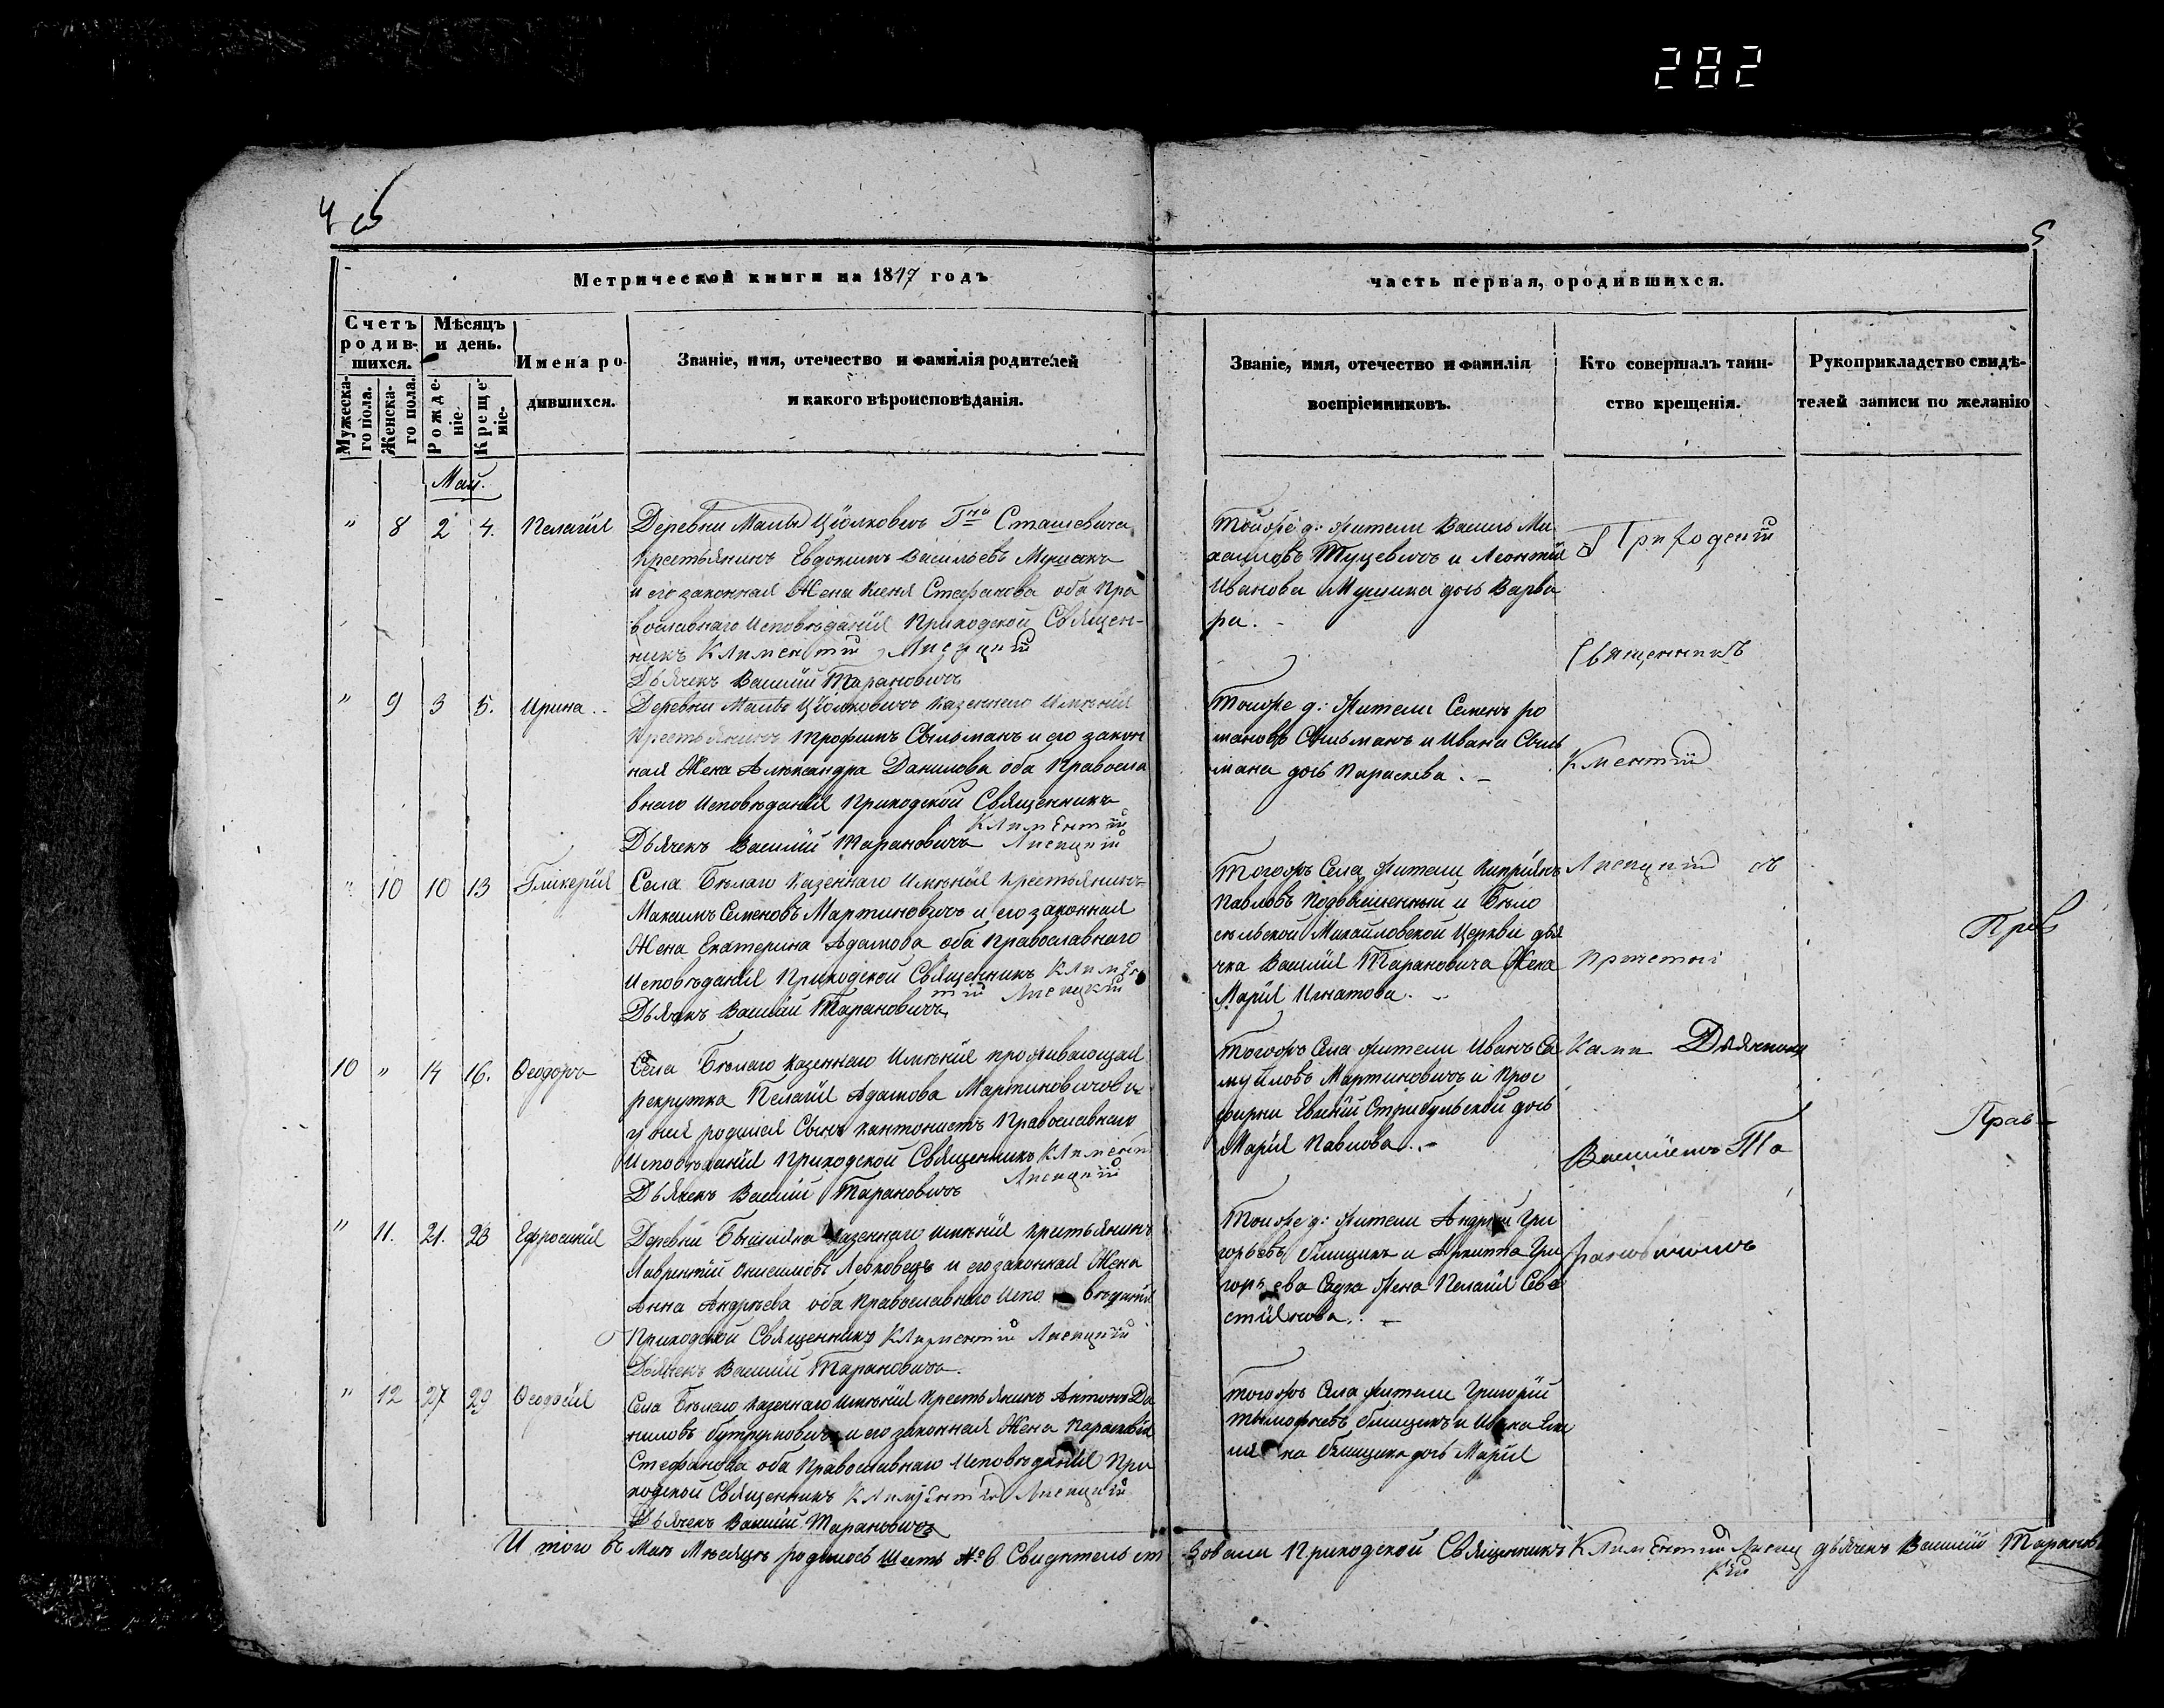 282
4
5
Метрической книги на 1847 годъ
часть первая, ородившихся.
Счетъ родив-шихся.
Мѣсяцъ и день.
Имена ро-
дившихся.
Званіе, имя, отечество и фамилія родителей
и какого вѣроисповѣданія.
Мужеска-го пола.
Женска-го пола.
Рожде-ніе.
Креще-ніе.
Званіе, имя, отечество и фамилія
воспріемниковъ.
Кто совершалъ таин-
ство крещенія.
Рукоприкладство свидѣ-
телей записи по желанію
Май.
" 8 2 4. Пелагія
Деревни Малыхъ Цѣолковичь Гна Сташевича
Крестьянинъ Евдокимъ Васильевъ Мушокъ
и его законная Жена Ксенія Стефанова оба Пра
вославнаго Исповѣданія Приходской Священ-
никъ Климентій Лисецкій
Дьячекъ Василій Тарановичь
Тойоже д: жители Василь Ми
хаиловъ Туцевичь и Леонтія
Иванова Мушика дочь Варва
ра. -
Приходскій
Священникъ
" 9 3 5. Ирина
Деревни Малыхъ Цѣолковичь Казеннаго Имѣнія
Крестьянинъ Трофимъ Сыльманъ и его закон
ная Жена Александра Данилова оба Правосла
внаго Исповѣданія Приходской Священникъ
Климентій
Дьячекъ Василій Тарановичь Лисецкій
Тоиоже д: Жители Семенъ Ро
мановъ Сыльманъ и Ивана Силь
мана дочь Параскева. -
Климентій
" 10 10 13 Гликерія
Села Бѣлаго Казеннаго Имѣнія Крестьянинъ
Максимъ Семеновъ Мартиновичь и его законная
Жена Екатерина Адамова оба Православнаго
Исповѣданія Приходской Священникъ Климен
тій Лисецкій
Дьячекъ Василій Тарановичь
Тогожъ Села Жители Кипріянъ
Павловъ Подвышенный и Бѣло
сельской Михайловской Церкви дья
чка Василія Тарановича Жена
Марія Игнатова. -
Лисецкій съ
Причетни
Прав
10 " 14 16. Ѳеодоръ
Села Бѣлаго Казеннаго Имѣнія проживающая
рекрутка Пелагія Адамова Мартиновичова
у нея родился Сынъ кантонистъ Православнаго
Исповѣданія Приходской Священникъ Климент
Лисецкій
Дьячекъ Василій Тарановичь
Тогожъ Села жители Иванъ Са
муйловъ Мартиновичь и Прос
фирни Евгеніи Стрибульской дочь
Марія Павлова. -
Ками Дьячкомъ
Василіемъ Та
Прав-
" 11. 21. 23 Ефросинія
Лаврентій Онисимовъ Левковецъ и его законная Жена
Анна Андреева оба Православнаго Испо вѣданія
Приходской Священникъ Климентій Лисецкій
Дьячекъ Василій Тарановичь.
Тоиоже д: Жители Андрей Гри
горьевъ Блищикъ и Архиппа Гри
горьева Садка Жена Пелагія Сева
стіянова. -
рановичомъ
" 12 27 29 Ѳеодосія
Села Бѣлаго Казеннаго Имѣнія Крестьянинъ Антонъ Да
ниловъ и его законная Жена Параскевія
Стефанова оба Православнаго Исповѣданія При
ходской Священникъ Климентій Лисецкій
Дьячекъ Василій Тарановичь
Тогожъ Села жители Григорій
Тимофіевъ Блищикъ и Ивана
Блищика дочь Марія
Итого въ Маѣ Мѣсяцѣ родилось Шесть № 6. Свидѣтельст вовали Приходской Священникъ Климентій Лисец дьячекъ Василій Таранов
кій